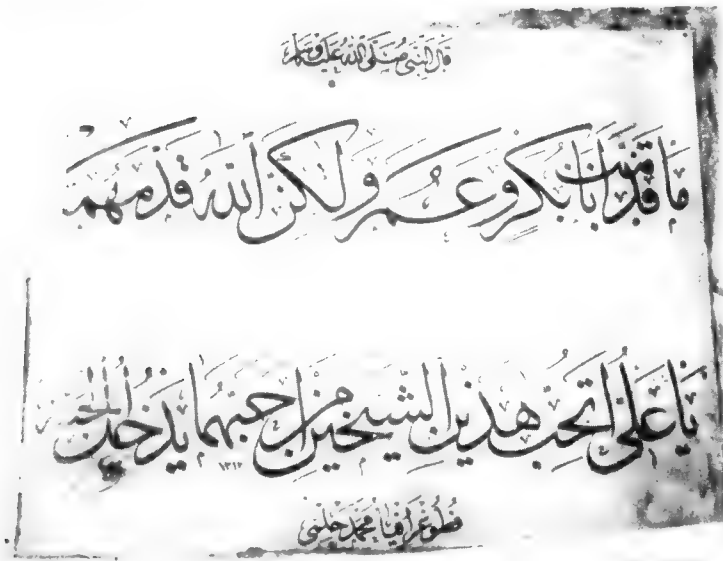 قال النبي صلى الله عليه وسلم
ما قدمت ابا بكر وعمر ولكن الله قدمهما
يا علي اتحب هذين الشيخين من احبهما يدخل الجنة
١٣١٢
فطوغرافيا محمد حلمي